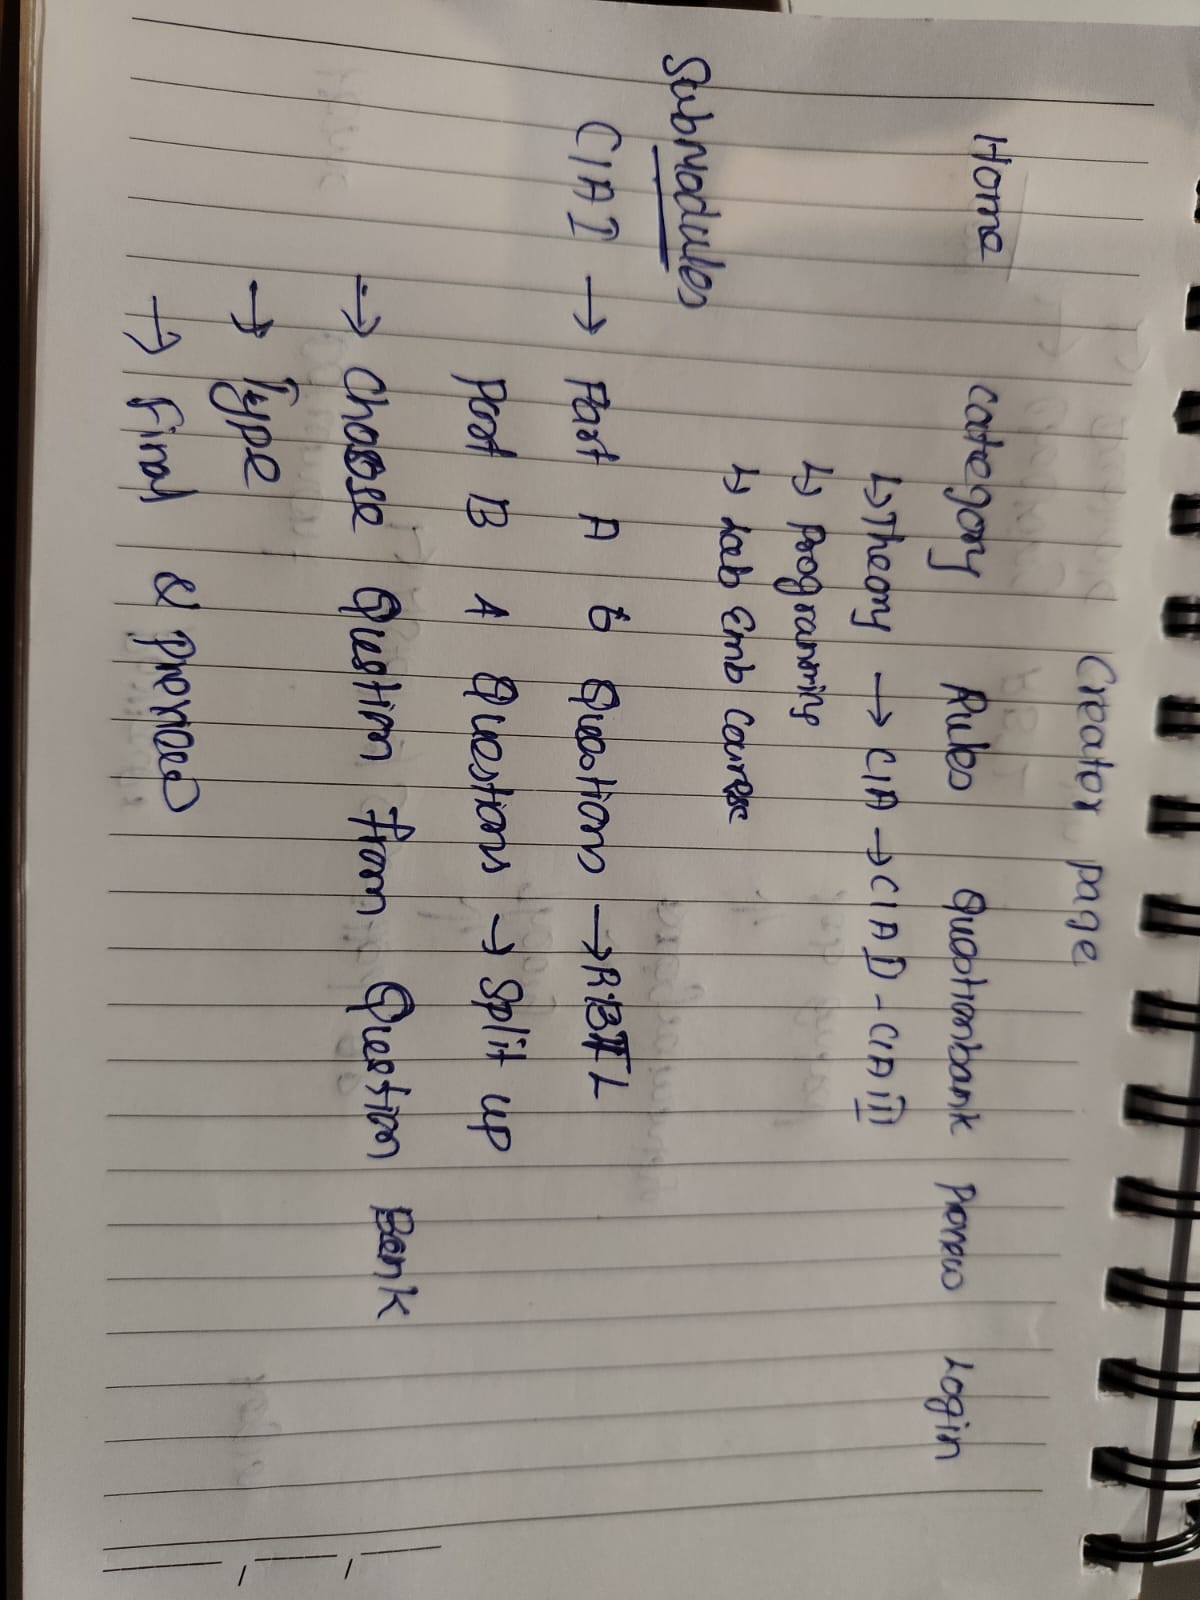 Creator page
Home category Rules Questionbank Preview Login
↳ Theory → CIA → CIA I - CIA III
↳ Programming
↳ Lab Emb Course
Submodules
CIA I → Part A 6 Questions →
Part B 4 Questions → Split up
→ Choose Question from Question Bank
→ Type
→ Final & preview